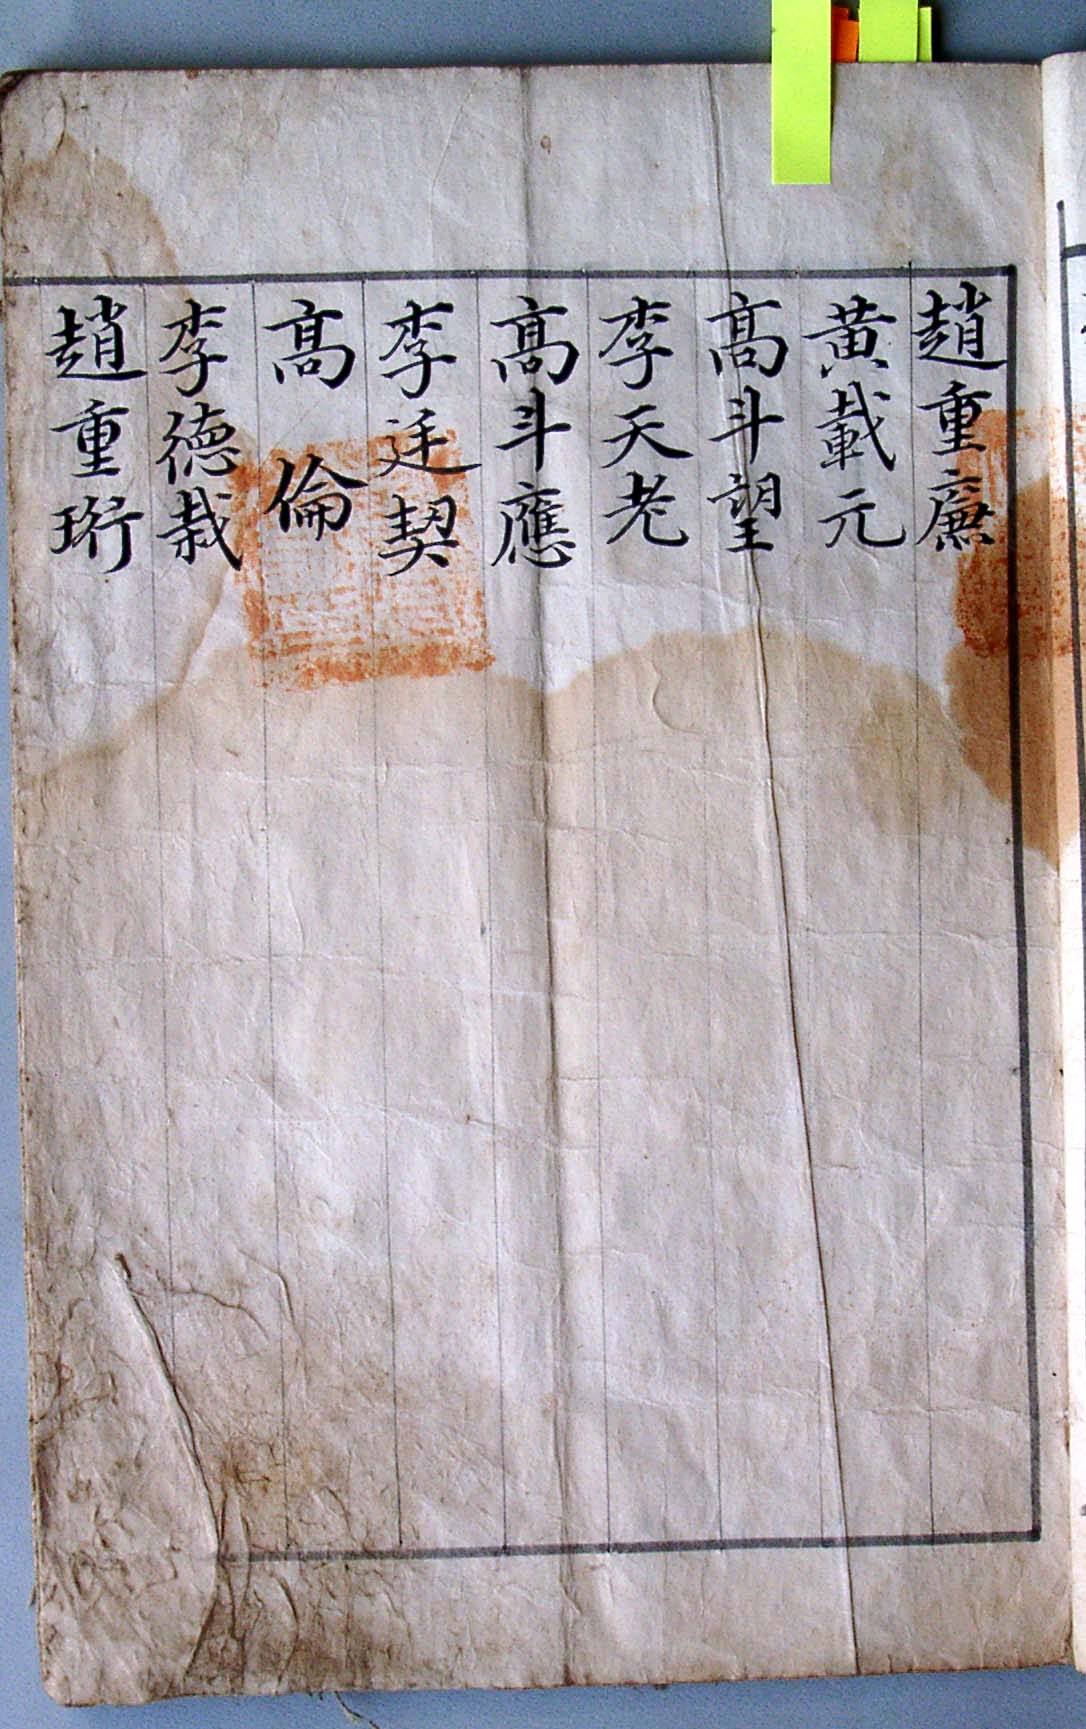 趙重廉
黃載元
高斗望
李天老
高斗應
李廷契
高倫
李德栽
趙重珩